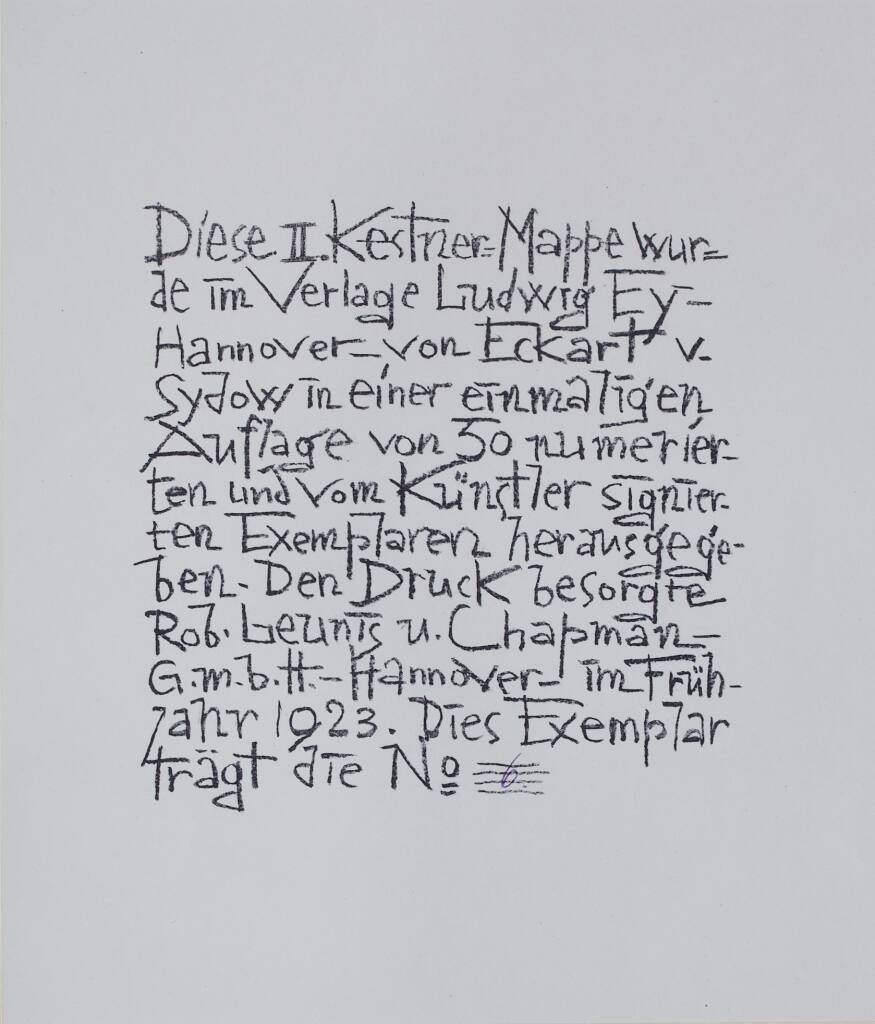 Diese II. Kestner=Mappe wur=
de im Verlage Ludwig Ey-
Hannover-, von Eckart v.
Sydow in einer einmaligen
Auflage von 50 numerier-
ten und vom Künstler signier-
ten Exemplaren herausgege-
ben. Den Druck besorgte
Rob. Leunis u. Chapman-
G.m.b.H.- Hannover- im Früh-
jahr 1923. Dies Exemplar
trägt die No 6.